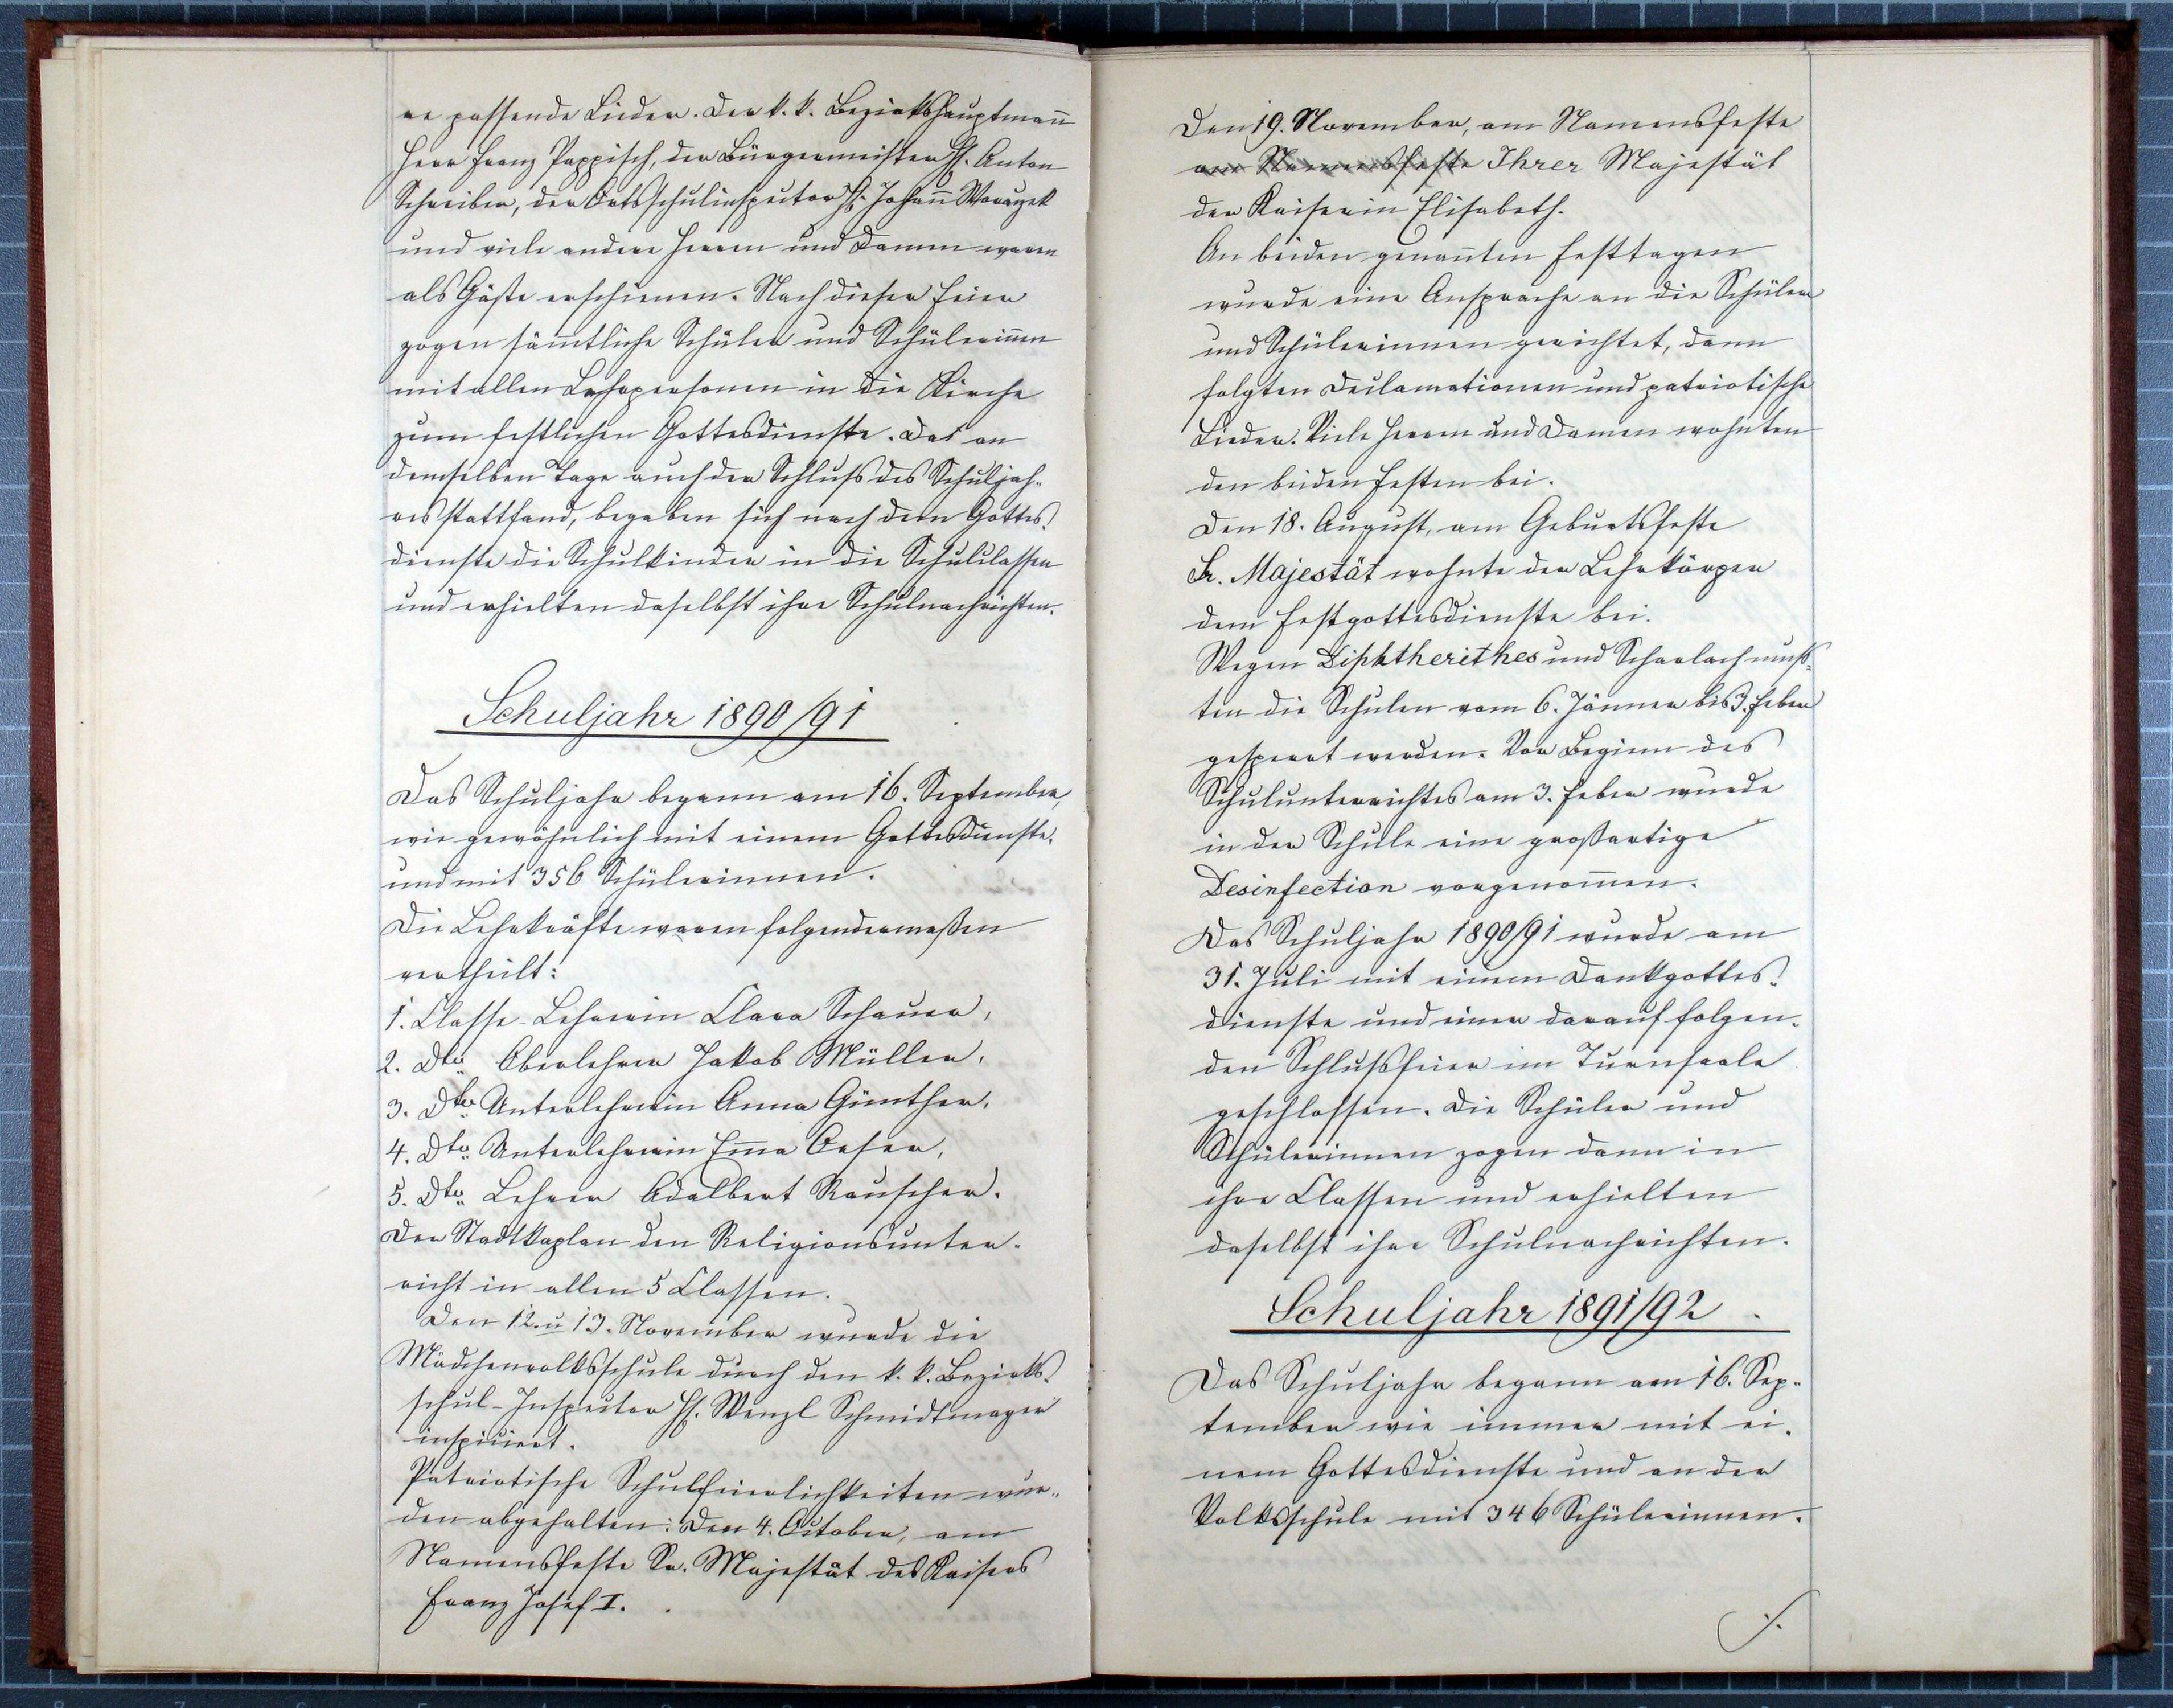 re passende Lieder. Der k. k. Bezirkshauptmañ
Herr Franz Pappisch, der Bürgermeister H. Anton
Schreiber, der Ortsschulinspector H. Johañ Woraczek
und viele andere Herren und Damen waren
als Gäste erschienen. Nach dieser Feier
zogen säm̄tliche Schüler und Schüleriñen
mit allen Lehrpersonen in die Kirche
zum festlichen Gottesdienste. Da an
demselben Tage auch der Schluß des Schuljah-
res stattfand, begaben sich nach dem Gottes-
dienste die Schulkinder in die Schulclassen
und erhielten daselbst ihre Schulnachrichten.
Schuljahr 1890/91
Das Schuljahr begann am 16. September,
wie gewöhnlich mit einem Gottesdienste.
und mit 356 Schülerinnen.
Die Lehrkräfte waren folgendermaßen
vertheilt:
1. Classe - Lehrerin Clara Schauer,
2. Dto Oberlehrer Jakob Müller,
3. Dto Unterlehrerin Anna Günther,
4. Dto Unterlehrerin Em̄a Oeser,
5. Dto Lehrer Adalbert Rauscher.
Der Stadtkaplan den Religionsunter-
richt in allen 5 Classen.
Den 12. u 13. November wurde die
Mädchenvolksschule durch den k. k. Bezirks-
schul-Inspector H. Wenzl Schmidtmayer
inspiciert.
Patriotische Schulfeierlichkeiten wur-
den abgehalten: Den 4. October, am
Namensfeste Sr. Majestät des Kaisers
Franz Josef I.
Den 19. November, am Namensfeste
am Namensfeste Ihrer Majestät
der Kaiserin Elisabeth.
An beiden genañten Festtagen
wurde eine Ansprache an die Schüler
und Schülerinnen gerichtet, dann
folgten Declamationen und patriotische
Lieder. Viele Herren und Damen wohnten
den beiden Festen bei.
Den 18. August, am Geburtsfeste
Sr. Majestät wohnte der Lehrkörper
dem Festgottesdienste bei.
Wegen Diphtherithes und Scharlach muß-
ten die Schulen vom 6. Jänner bis 3. Feber
gesperrt werden. Vor Beginn des
Schulunterrichtes am 3. Feber wurde
in der Schule eine großartige
Desinfection vorgenom̄en.
Das Schuljahr 1890/91 wurde am
31. Juli mit einem Dankgottes-
dienste und einer darauf folgen-
den Schlußfeier im Turnsaale
geschlossen. Die Schüler und
Schülerinnen zogen dann in
ihre Classen und erhielten
daselbst ihre Schulnachrichten.
Schuljahr 1891/92.
Das Schuljahr begann am 16. Sep-
tember wie immer mit ei-
nem Gottesdienste und an der
Volksschule mit 346 Schülerinnen.